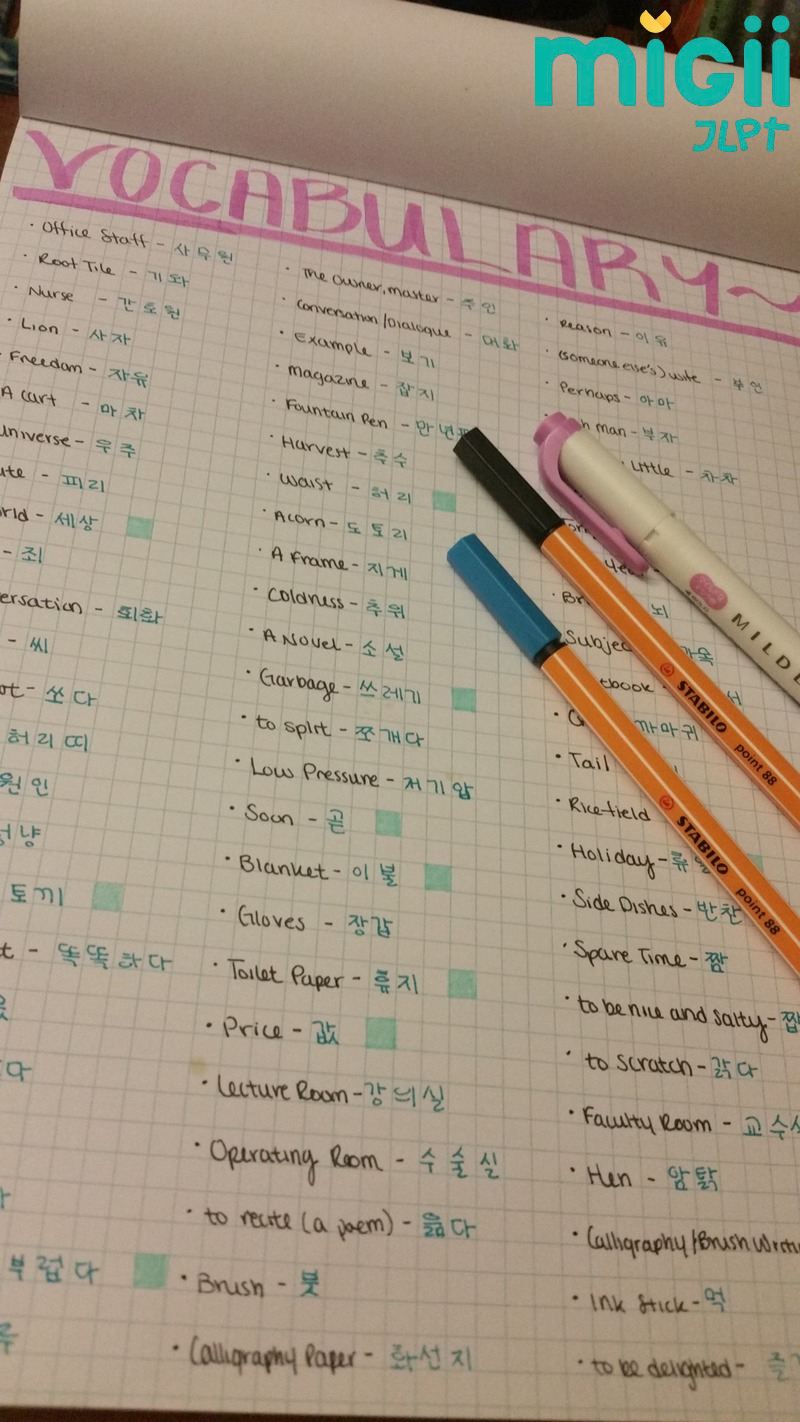 migii
JLPT
VOCABULARY~
· Office Staff - 사무원
· Roof Tile - 기와
· Nurse - 간호원
· Lion - 사자
Freedom - 자유
A cart - 마차
universe - 우주
피리
세상
- 죄
회화
- 씨
쏘다
허리띠
원인
토끼
- 똑똑하다
부럽다
· The owner, master - 주인
· Conversation/Dialogue - 대화
· Example - 보기
· Magazine - 잡지
· Fountain Pen - 만년
· Harvest - 추수
· Waist - 허리
· Acorn - 도토리
· A Frame - 지게
· Coldness - 추위
· A Novel - 소설
· Garbage - 쓰레기
· to split - 쪼개다
· Low Pressure - 저기압
· Soon - 곧
· Blanket - 이불
· Gloves - 장갑
· Toilet Paper - 휴지
· Price - 값
· Lecture Room - 강의실
· Operating Room - 수술실
· to recite (a poem) - 읊다
· Brush - 붓
· Calligraphy Paper - 화선지
· Reason - 이유
· (someone else's) wife - 부인
· Perhaps - 아마
man - 부자
Little - 차차
뇌
까마귀
· Tail
· Rice field
· Holiday - 휴일
· Side Dishes - 반찬
· Spare Time - 짬
· to be nice and salty -
· to scratch - 긁다
· Faculty Room - 교수
· Hen - 암탉
· Calligraphy/Brush
· Ink Stick - 먹
· to be delighted -
MILD
STABILO point 88
STABILO point 88